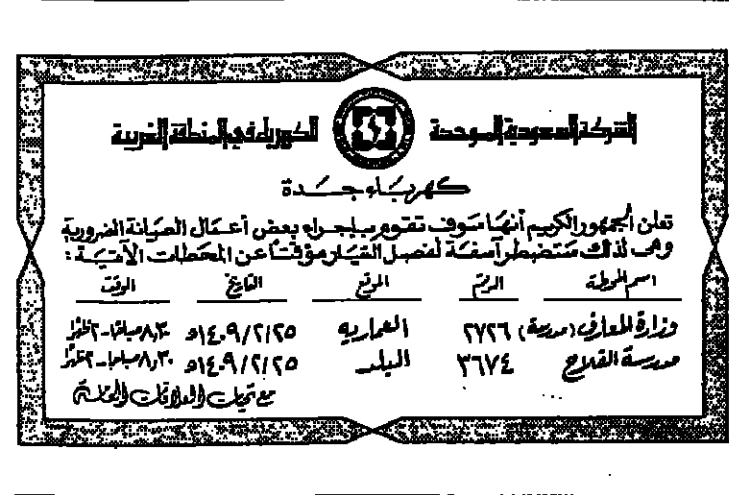 الشركة السعودية الموحدة للكهرباء في المنطقة الغربية
كهرباء جدة
تعلن للجمهور الكريم أنها سوف تقوم بإجراء بعض أعمال الصيانة الضرورية
وهى لذلك ستضطر آسفة لفصل التيار مؤقتاً عن المحطات الآتية :
اسم المحطة الرقم الموقع التاريخ الوقت
وزارة المعارف (مدرسة) ٢٧٢٦ العمارية ١٤٠٩/٢/٢٥هـ ٨,٣٠ صباحا - ٢ ظهرا
مدرسة الفلاح ٣٦٧٤ البلد ١٤٠٩/٢/٢٥هـ ٨,٣٠ صباحا - ٢ ظهرا
مع تحيات العلاقات العامة